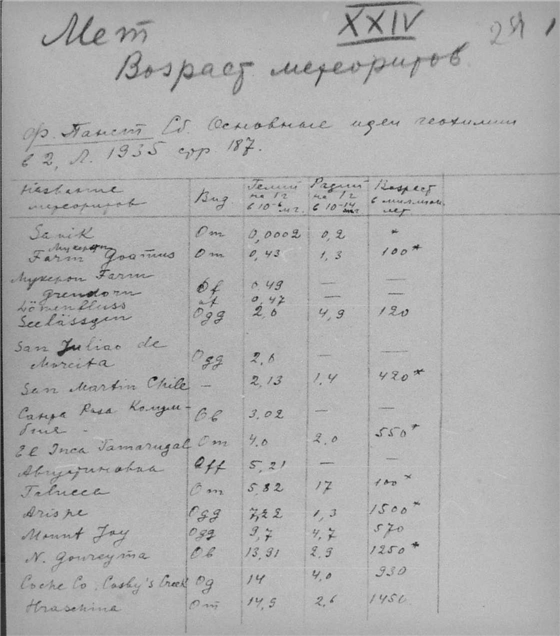 Мет XXIV
Возраст метеоритов.
ф. Панет Сб. Основные идеи геохимии
в 2, Л. 1935 стр 187.
Название метеоритов Вид Гелий на 1 г в 10-6 Радий на 1 г в 10-14 Возраст в миллион. лет
Sarik Om 0,0002 0,2 *
Farm Goamus Om 0,43 1,3 100*
Мукероп Farm
grendorn Of 0,49 — —
Löwenfluss of 0,47 — —
Seeläsgen Ogg 2,0 4,9 120
San Juliao de
Moreita Ogg 2,6 — —
San Martin Chile – 2,13 1,4 420*
Санта Роза Колум-
бия – Ов 3,02 — —
El Inca Tamarugal Om 4,0 2,0 550*
Августиновка Off 5,21 — —
Toluca Om 5,82 17 100*
Arispe Ogg 7,22 1,3 1500*
Mount Joy Ogg 9,7 4,7 570
N. Goureyma Ов 13,91 2,9 1250*
Cocke Co. Cosby's Creek Og 14 4,0 930
Hraschina Om 14,9 2,6 1450